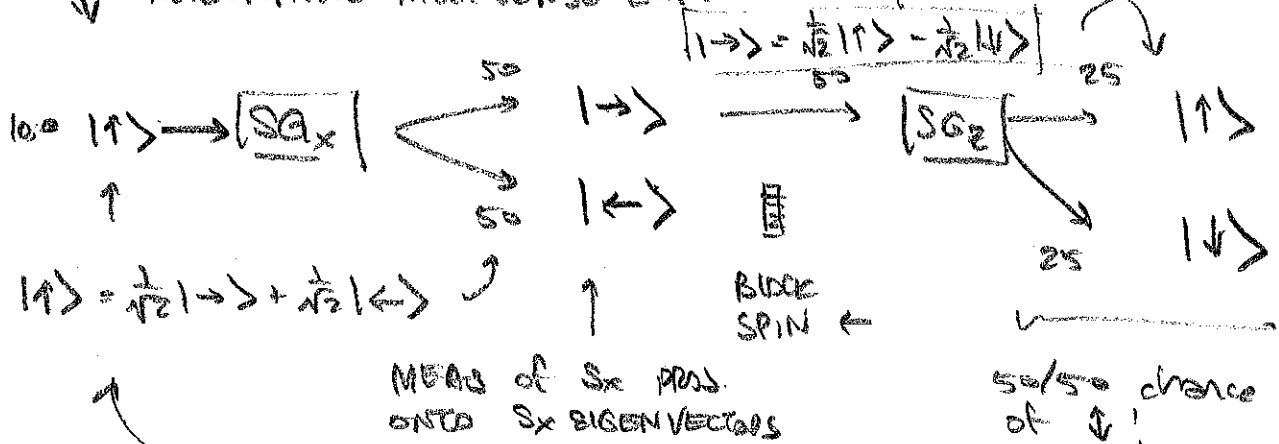 |→> = 1/√2 |↑> - 1/√2 |↓>
50 50 25
100 |↑> → |SGx| |→> → |SGz| → |↑>
50 |←> 25 |↓>
|↑> = 1/√2 |→> + 1/√2 |←>
BLOCK
SPIN ←
MEAS of Sx PROJ.
ONTO Sx EIGENVECTORS
50/50 chance
of ↕!